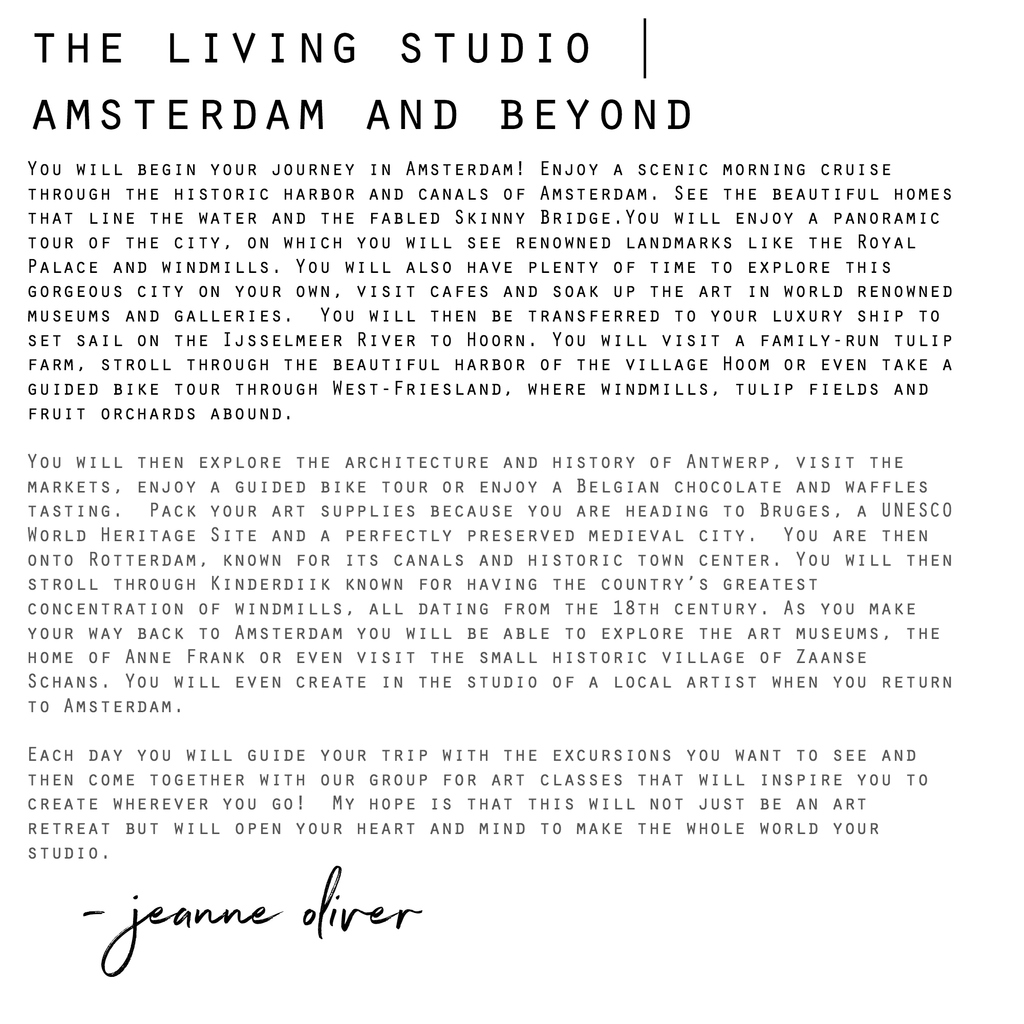 THE LIVING STUDIO |
AMSTERDAM AND BEYOND
You will begin your journey in Amsterdam! Enjoy a scenic morning cruise
through the historic harbor and canals of Amsterdam. See the beautiful homes
that line the water and the fabled Skinny Bridge.You will enjoy a panoramic
tour of the city, on which you will see renowned landmarks like the Royal
Palace and windmills. You will also have plenty of time to explore this
gorgeous city on your own, visit cafes and soak up the art in world renowned
museums and galleries.  You will then be transferred to your luxury ship to
set sail on the Ijsselmeer River to Hoorn. You will visit a family-run tulip
farm, stroll through the beautiful harbor of the village Hoom or even take a
guided bike tour through West-Friesland, where windmills, tulip fields and
fruit orchards abound.
You will then explore the architecture and history of Antwerp, visit the
markets, enjoy a guided bike tour or enjoy a Belgian chocolate and waffles
tasting.  Pack your art supplies because you are heading to Bruges, a UNESCO
World Heritage Site and a perfectly preserved medieval city.  You are then
onto Rotterdam, known for its canals and historic town center. You will then
stroll through Kinderdiik known for having the country’s greatest
concentration of windmills, all dating from the 18th century. As you make
your way back to Amsterdam you will be able to explore the art museums, the
home of Anne Frank or even visit the small historic village of Zaanse
Schans. You will even create in the studio of a local artist when you return
to Amsterdam.
Each day you will guide your trip with the excursions you want to see and
then come together with our group for art classes that will inspire you to
create wherever you go!  My hope is that this will not just be an art
retreat but will open your heart and mind to make the whole world your
studio.
- jeanne oliver